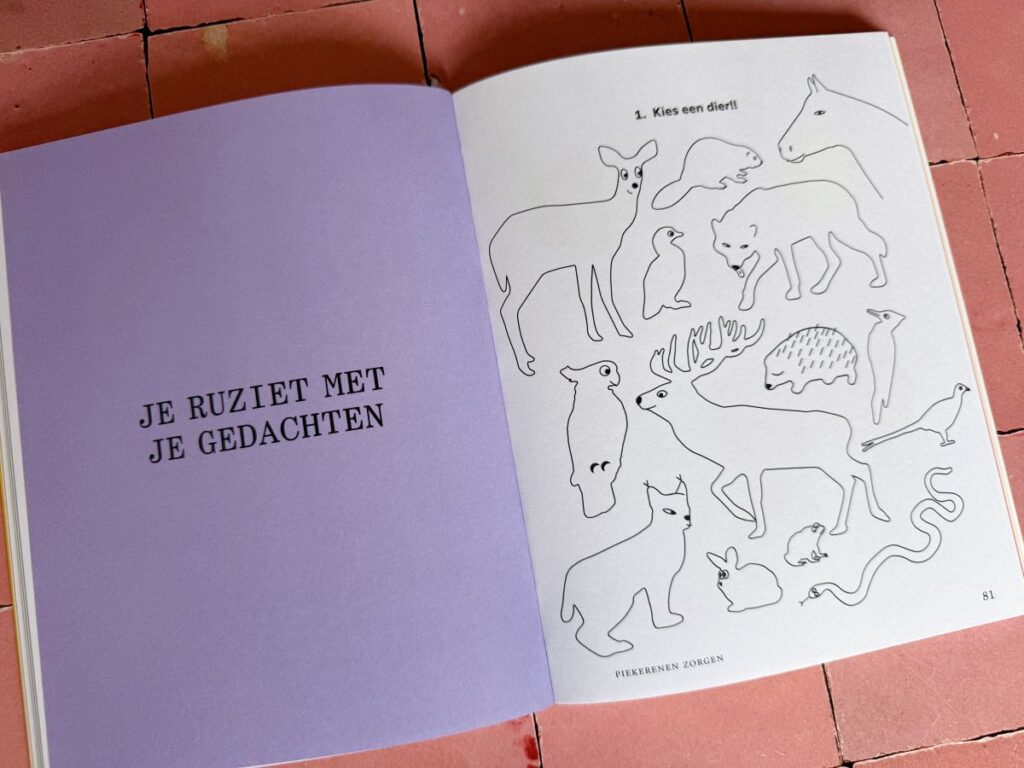 JE RUZIET MET
JE GEDACHTEN
1. Kies een dier!!
PIEKERENEN ZORGEN
81